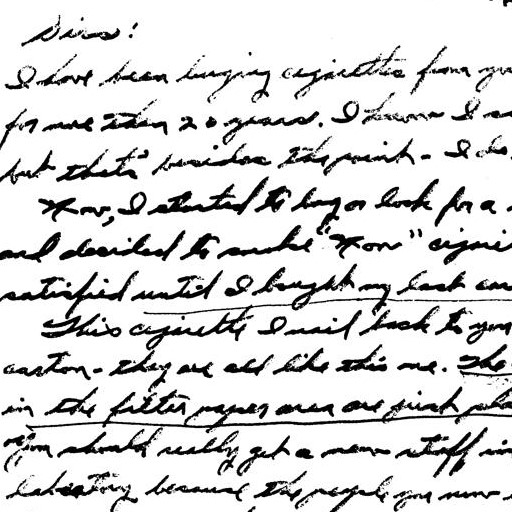 Sirs:
I have been buying cigarettes from you
for more than 20 years. I know I
but thats' besides the point - I do
Now, I started to buy or look for a
and decided to smoke "Now"
satisfied until I bought my last
This cigarette I mail back to you
carton - they are all like this one. The
in the filter paper area are just
you should really get a new staff in
laboratory because the people you now